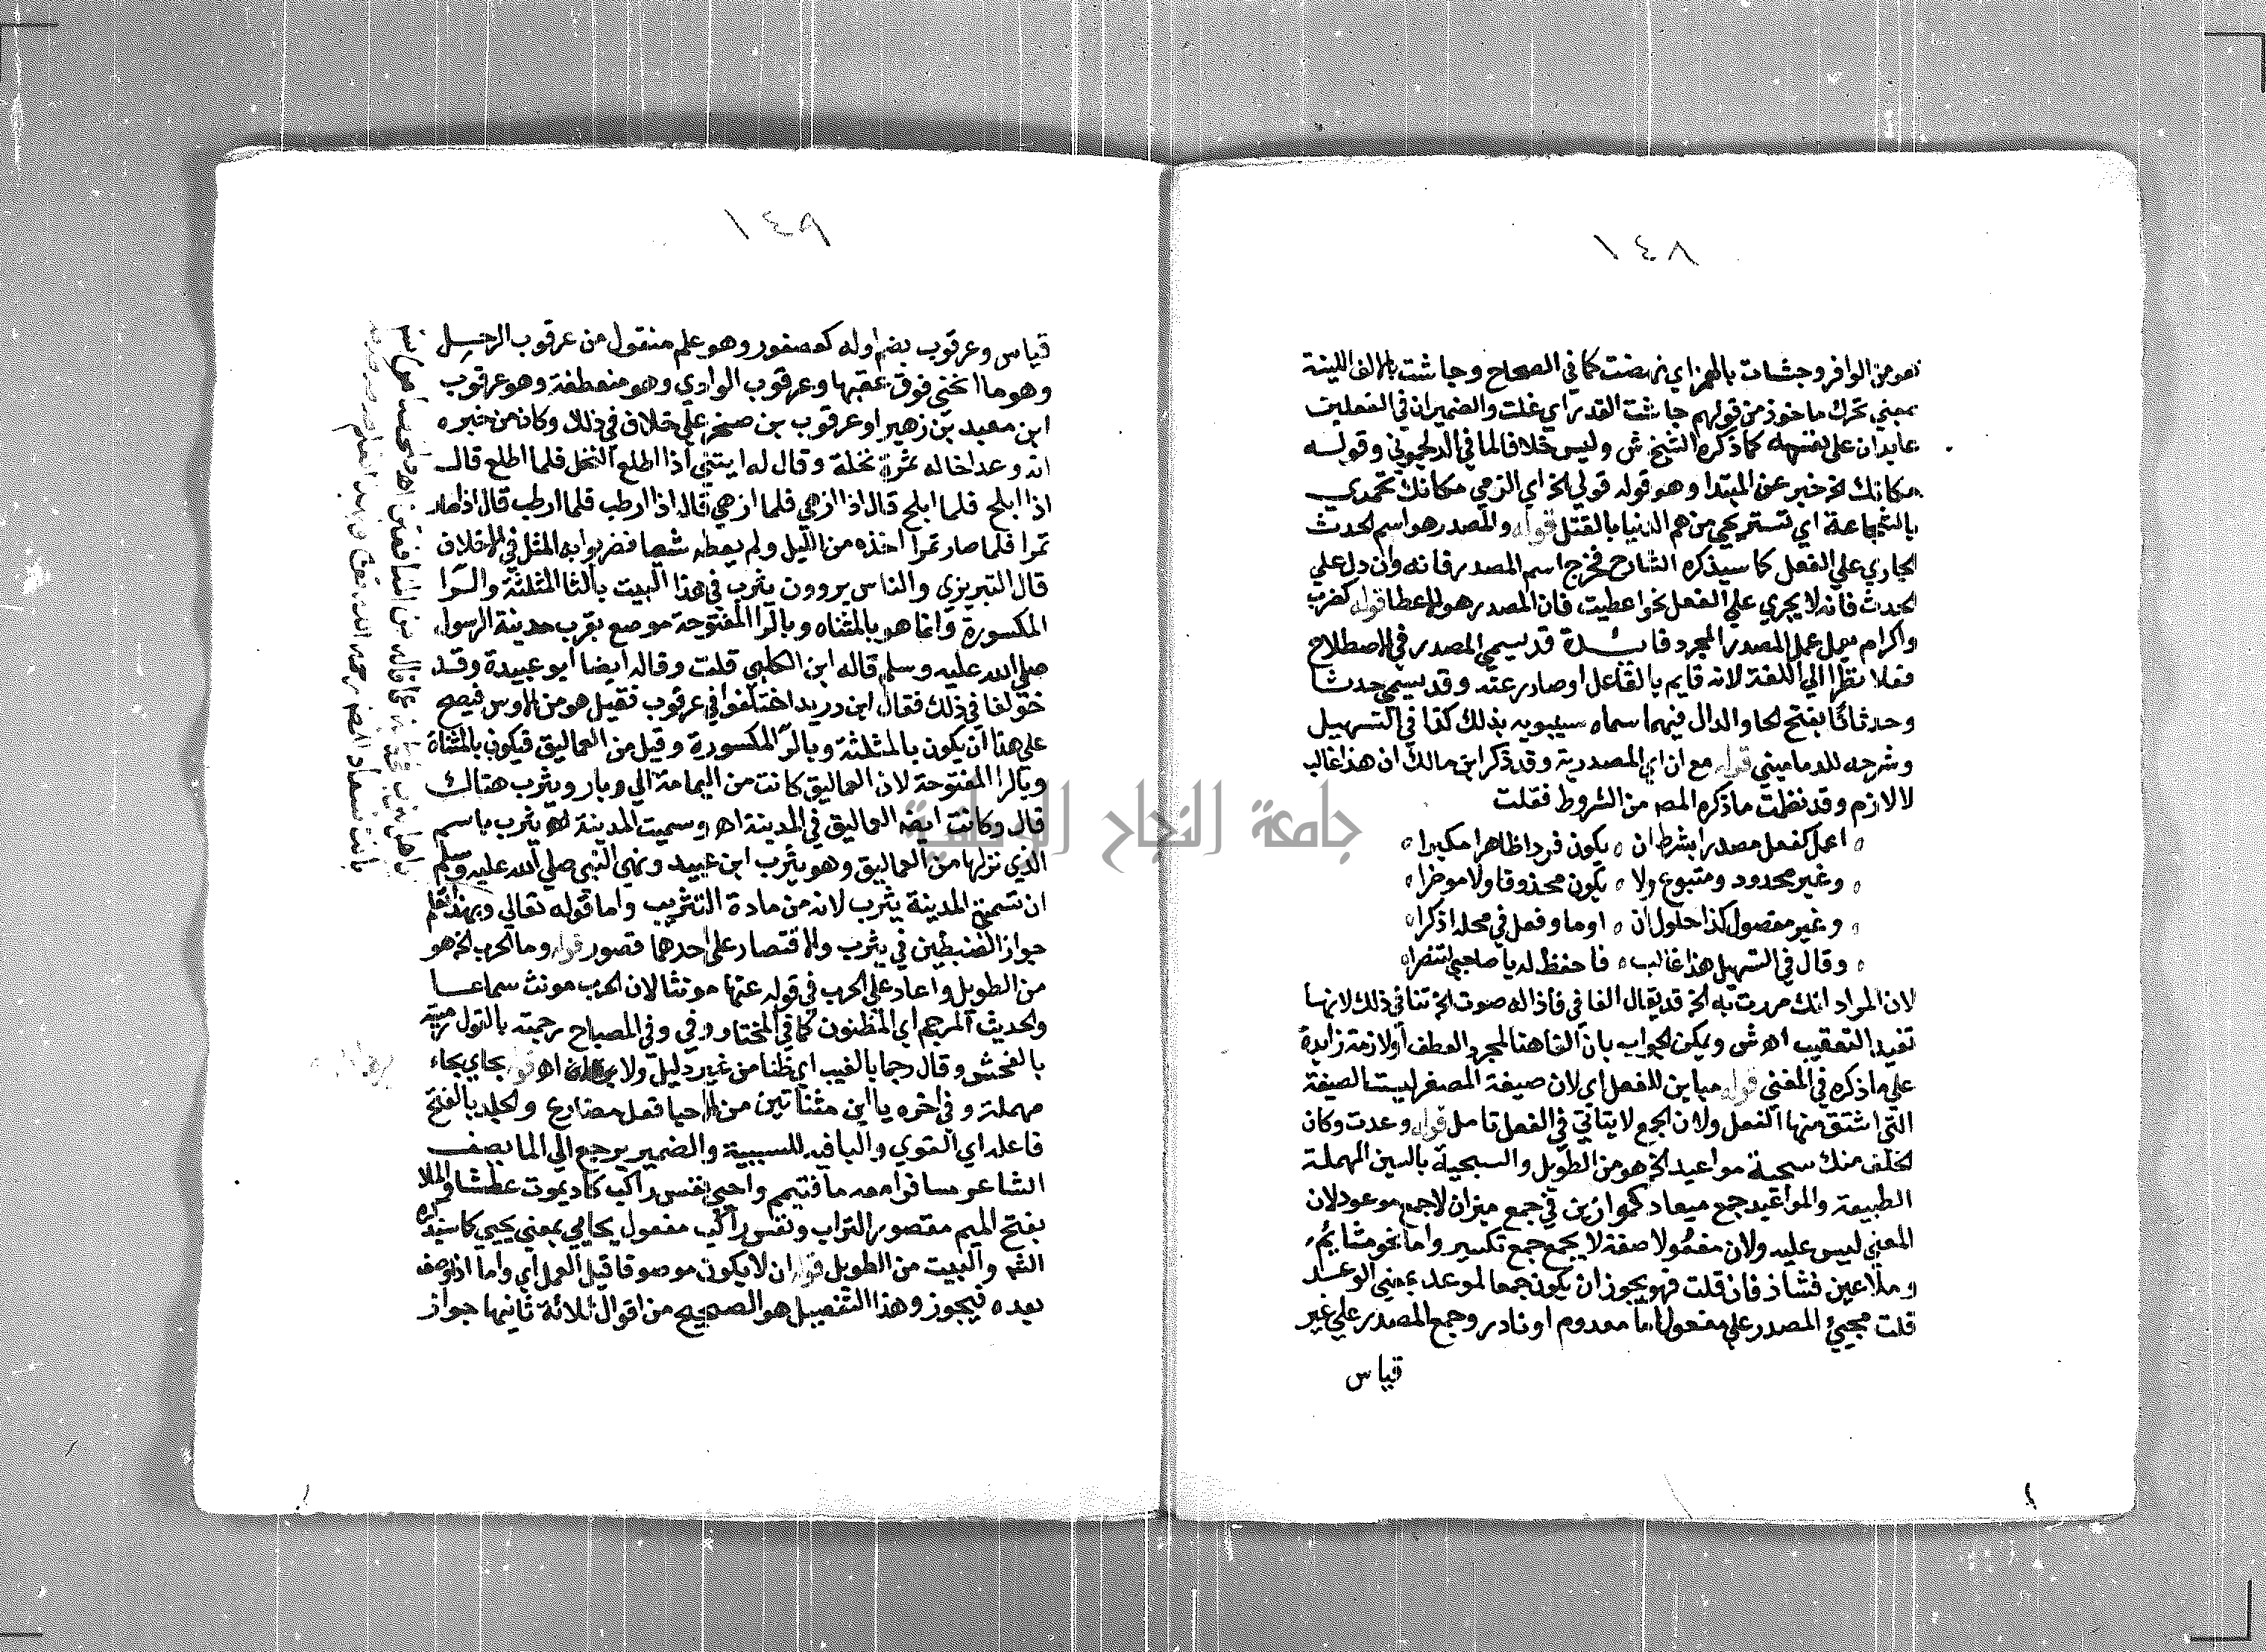 ١٤٨
هو من الوافر وجشات بالهمز اي نهضت كما في الصحاح وجاشت بالالف اللينة
بمعني تحرك ماخوذ من قولهم جاشت القدر اي غلت والضميران في الفعلين
عايدان على نفسه كما ذكره الشيخ ش وليس خلافا لما في الدلجموني وقوله
مكانك الخ خبر عن المبتدا وهو قوله قولي الخ اي الزمي مكانك تحمدي
بالشجاعة اي تستريحي من هم الدنيا بالقتل قوله والمصدر هو اسم الحدث
الجاري علي الفعل كما سيذكره الشارح فخرج اسم المصدر فانه وان دل علي
الحدث فانه لا يجري علي الفعل نحو اعطيت فان المصدر هو الاعطا قوله كضرب
واكرام يعمل عمل المصدر المجرد فائدة قد يسمي المصدر في الاصطلاح
فعلا نظرا الي اللغة لانه قايم بالفاعل او صادر عنه وقد يسمي حدثا
وحدثانا بفتح الحا والدال فيهما سماه سيبويه بذلك كذا في التسهيل
وشرحه للدماميني قوله مع ان اي المصدرية وقد ذكر ابن مالك ان هذا غالب
لا لازم وقد نظمت ما ذكره المص من الشروط فقلت
اعمل كفعل مصدرا بشرط ان ه يكون فردا ظاهرا مكبرا ه
وغير محدود ومتبوع ولا ه يكون محذوفا ولا موخرا ه
وغير مفصول كذا حلول ان ه او ما وفعل في محله اذكرا ه
وقال في التسهيل هذا غالب ه فاحفظ له يا صاحبي لتنصرا ه
لان المراد انك مررت به الخ قد يقال الفا في فاذا له صوت الخ تنافي ذلك لانها
تفيد التعقيب اه ش ويمكن الجواب بان الفا هنا لمجرد العطف او لازمة زايدة
علي ما ذكره في المغني قوله مباين للفعل اي لان صيغة المصغر ليست الصيغة
التي اشتق منها الفعل ولان الجمع لا يتاتي في الفعل تامل قوله وعدت وكان
الخلف منك سجية مواعيد الخ هو من الطويل والسجية بالسين المهملة
الطبيعة والمواعيد جمع ميعاد كموازين في جمع ميزان لا جمع موعود لان
المعني ليس عليه ولان مفعولا صفة لا يجمع جمع تكسير واما نحو مشايم
وملاعين فشاذ فان قلت فهو يجوز ان يكون جمعا لموعد بمعني الوعد
قلت مجيئ المصدر علي مفعول اما معدوم او نادر وجمع المصدر علي غير
قياس
١٤٩
قياس وعرقوب بضم اوله كعصفور وهو علم منقول من عرقوب الرجل
وهو ما انحني فوق عقبها وعرقوب الوادي وهو منعطفة وهو عرقوب
ابن معبد بن زهير او عرقوب بن صخر علي خلاف في ذلك وكان من خبره
انه وعد اخا له ثمرة نخلة وقال له ايتني اذا اطلع النخل فلما اطلع قال
اذا ابلح فلما ابلح قال اذا ازهي فلما ازهي قال اذا ارطب فلما ارطب قال اذا صار
تمرا فلما صار تمرا اخذه من الليل ولم يعطه شيا فضربوا به المثل في الاخلاف
قال التبريزي والناس يروون يثرب في هذا البيت بالثا المثلثة والرا
المكسورة وانما هو بالمثناه وبالرا المفتوحة موضع بقرب مدينة الرسول
صلي الله عليه وسلم قاله ابن الكلبي قلت وقاله ايضا ابو عبيدة وقد
خولفا في ذلك فقال ابن دريد اختلفوا في عرقوب فقيل هو من الاوس فيصح
علي هذا ان يكون بالمثلثة وبالرا المكسورة وقيل من العماليق فيكون بالمثناة
وبالرا المفتوحة لان العماليق كانت من اليمامة الي وبار ويثرب هناك
قال وكانت ايضا العماليق في المدينة اه وسميت المدينة اه يثرب باسم
الذي نزلها من العماليق وهو يثرب ابن عبيد ونهي النبي صلي الله عليه وسلم
ان تسمي المدينة يثرب لانه من مادة التثريب واما قوله تعالي وبهذا تعلم
جواز الضبطين في يثرب والاقتصار علي احدهما قصور قوله وما الحرب الخ هو
من الطويل واعاد علي الحرب في قوله عنها مونثا لان الحرب مونث سماعا
والحديث المرجم اي المظنون كما في المختار وفي المصباح رجمته بالقول رميته
بالفحش وقال رجما بالغيب اي ظنا من غير دليل ولا برهان اه قوله يحاي بحاء
مهملة وفي اخره يا ابن مثناتين من الاحيا فعل مضارع والجلد بالفتح
فاعله اي القوي والبا فيه للسببية والضمير يرجع الي الما يصف
الشاعر مسافرا معه ما فتيمم واحيي نفس راكب كاد يموت عطشا والملا
بفتح الميم مقصور التراب ونفس راكب مفعول يحايي بمعني يحيي كما سيذكره
الشم والبيت من الطويل قوله ان لا يكون موصوفا قبل العمل اي واما اذا وصف
بعده فيجوز وهذا التفصيل هو الصحيح من اقوال ثلاثة ثانيها جواز
جامعة النجاح الوطنية